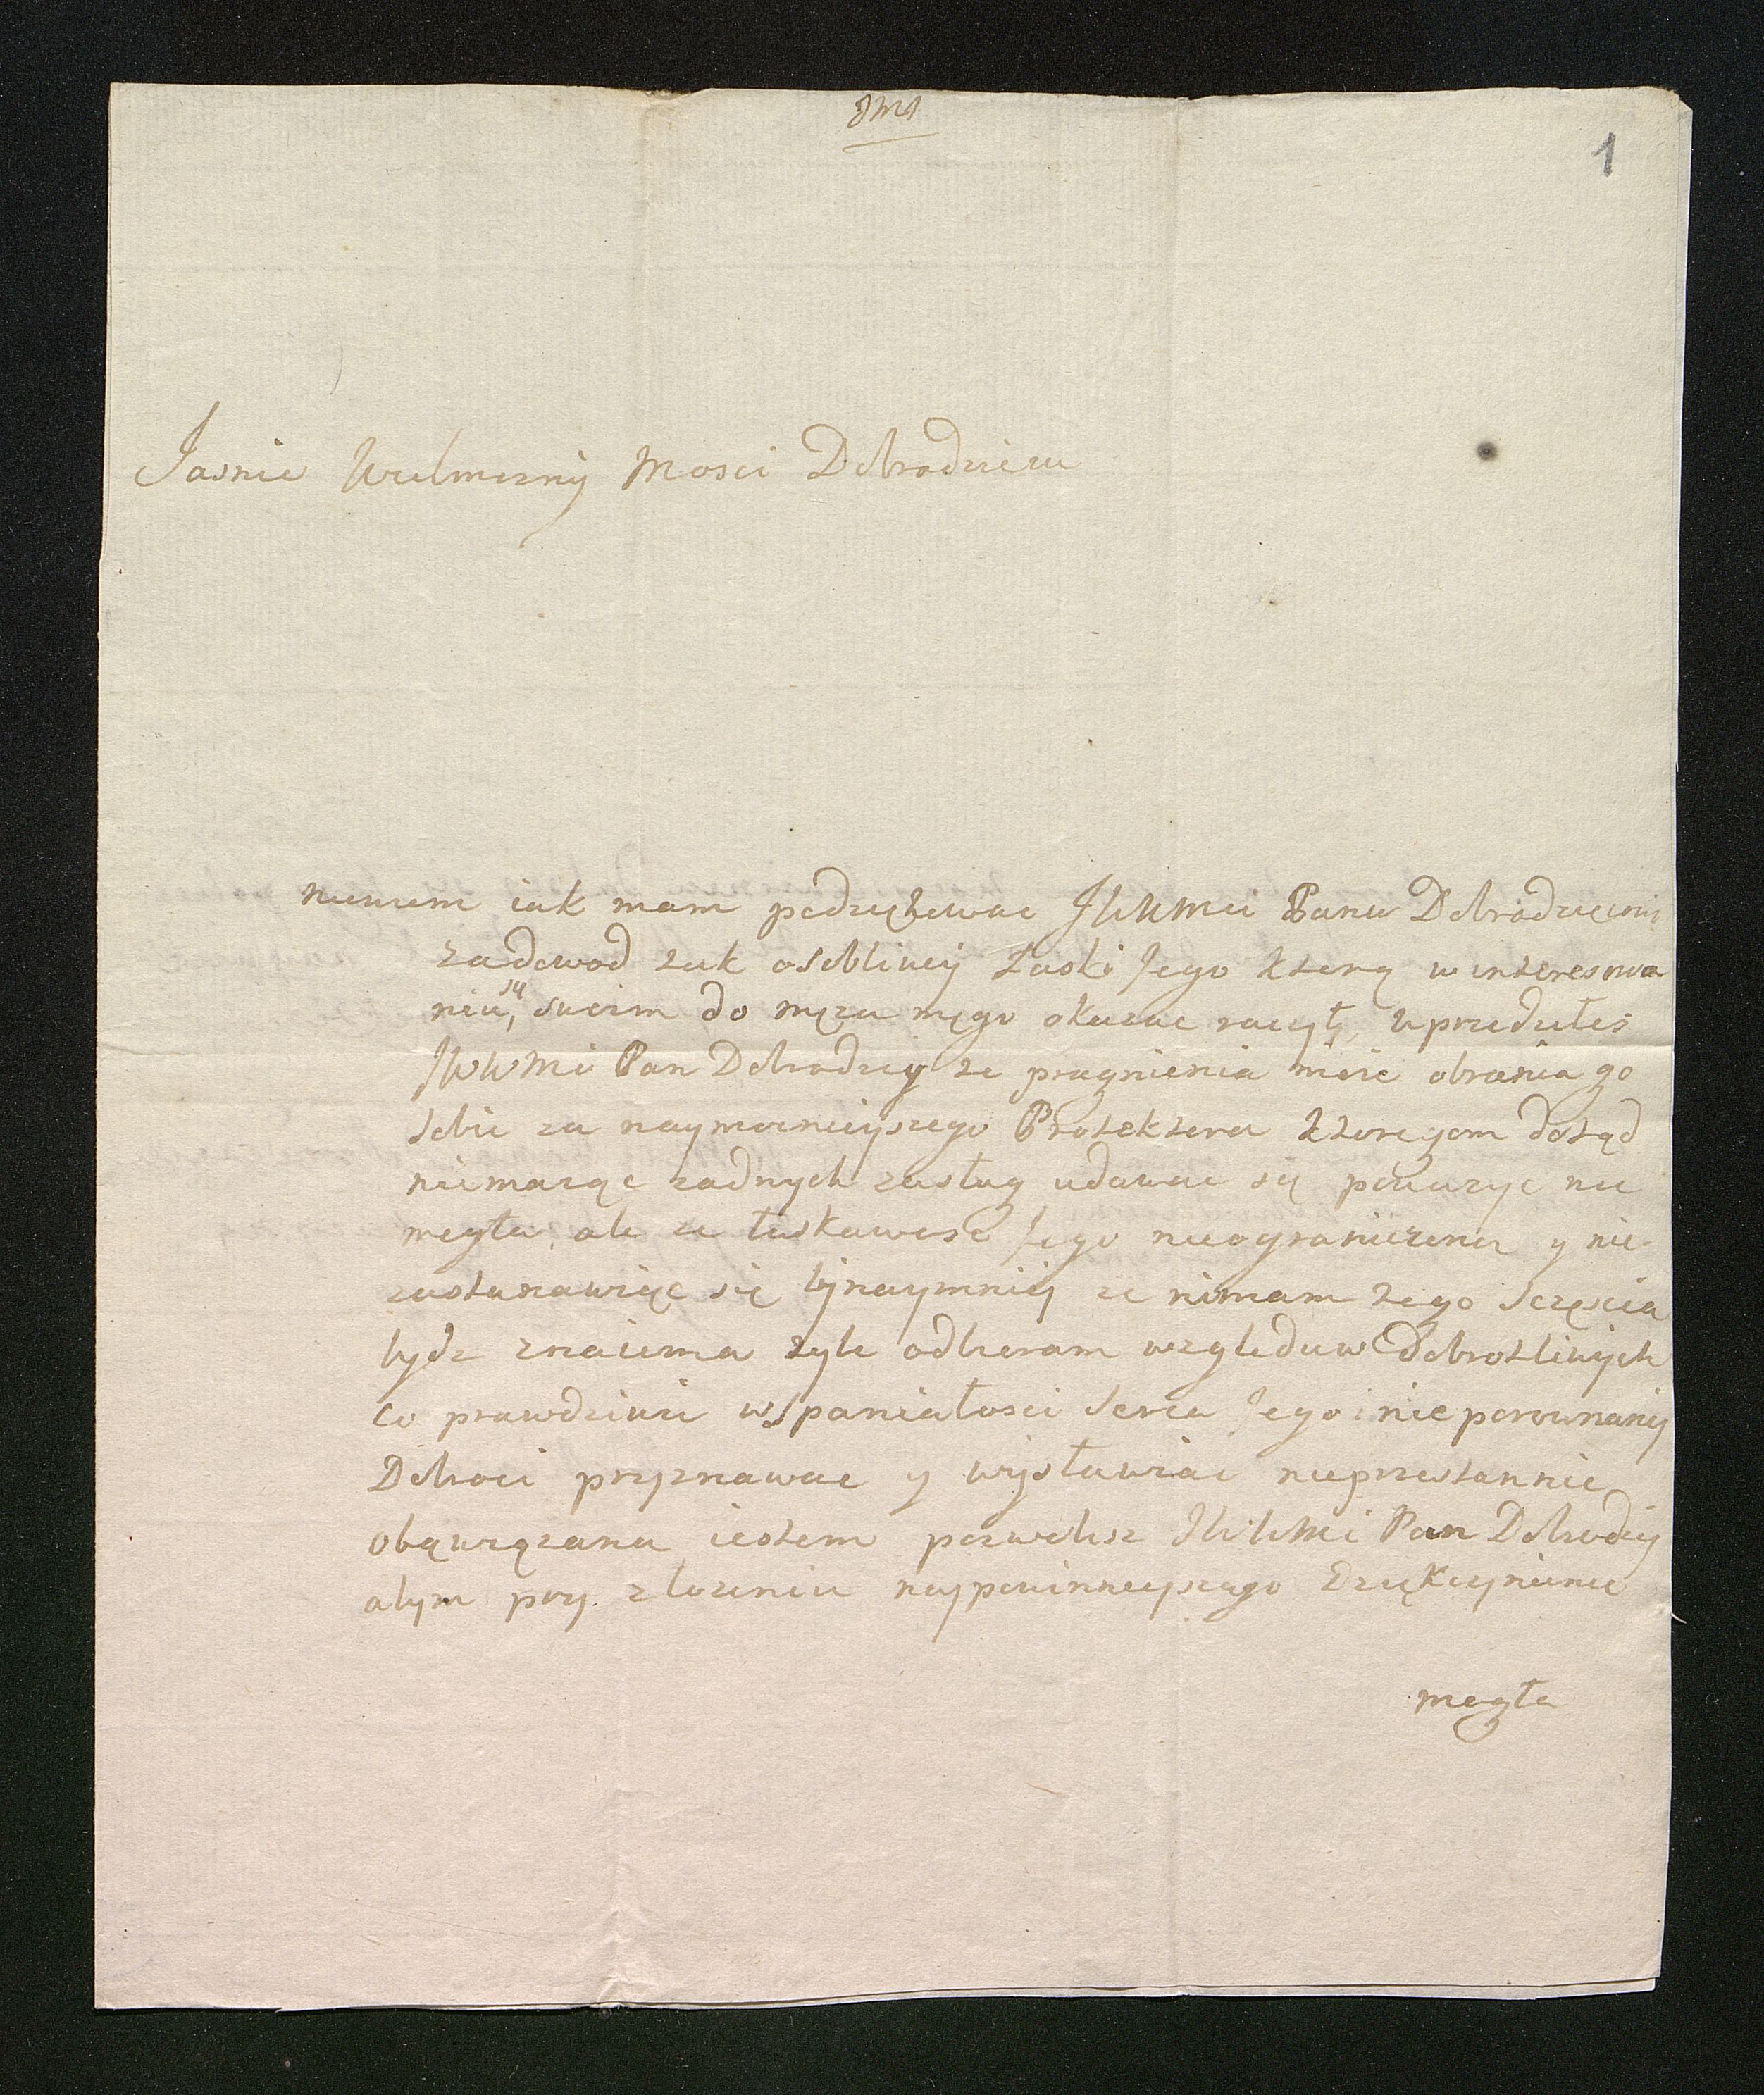 1
Jasnie Wielmozny Mosci Dobrodzieiu
niewiem iak mam podziękowac JWWMci Panu Dobrodzieiowi
za dowod tak osobliwey Łaski Jego ktorą w interesowa
niu się swoim do męza mego okazac raczyłeś, uprzedziłes
JWWMci Pan Dobrodziey te pragnienia moie obrania go
sobie za naymocnieyszego Protektora ktoregom dotąd
niemaiąc zadnych zasług udawac się powazyc nie
mogła, ale ze łaskawosc Jego nieograniczona y nie
zastanawiąc się bynaymniey ze nimam tego sczęscia
bydz znaioma tyle odbieram względuw dobrotliwych
co prawdziwie wspaniałosci serca Jego i nie porownaney
Dobroci przyznawac y wysławiac nieprzestannie
obąwiązana iestem pozwolisz JWWMci Pan Dobrodziey
abym przy złozeniu naypowinnieyszego dziękczynienia
mogła